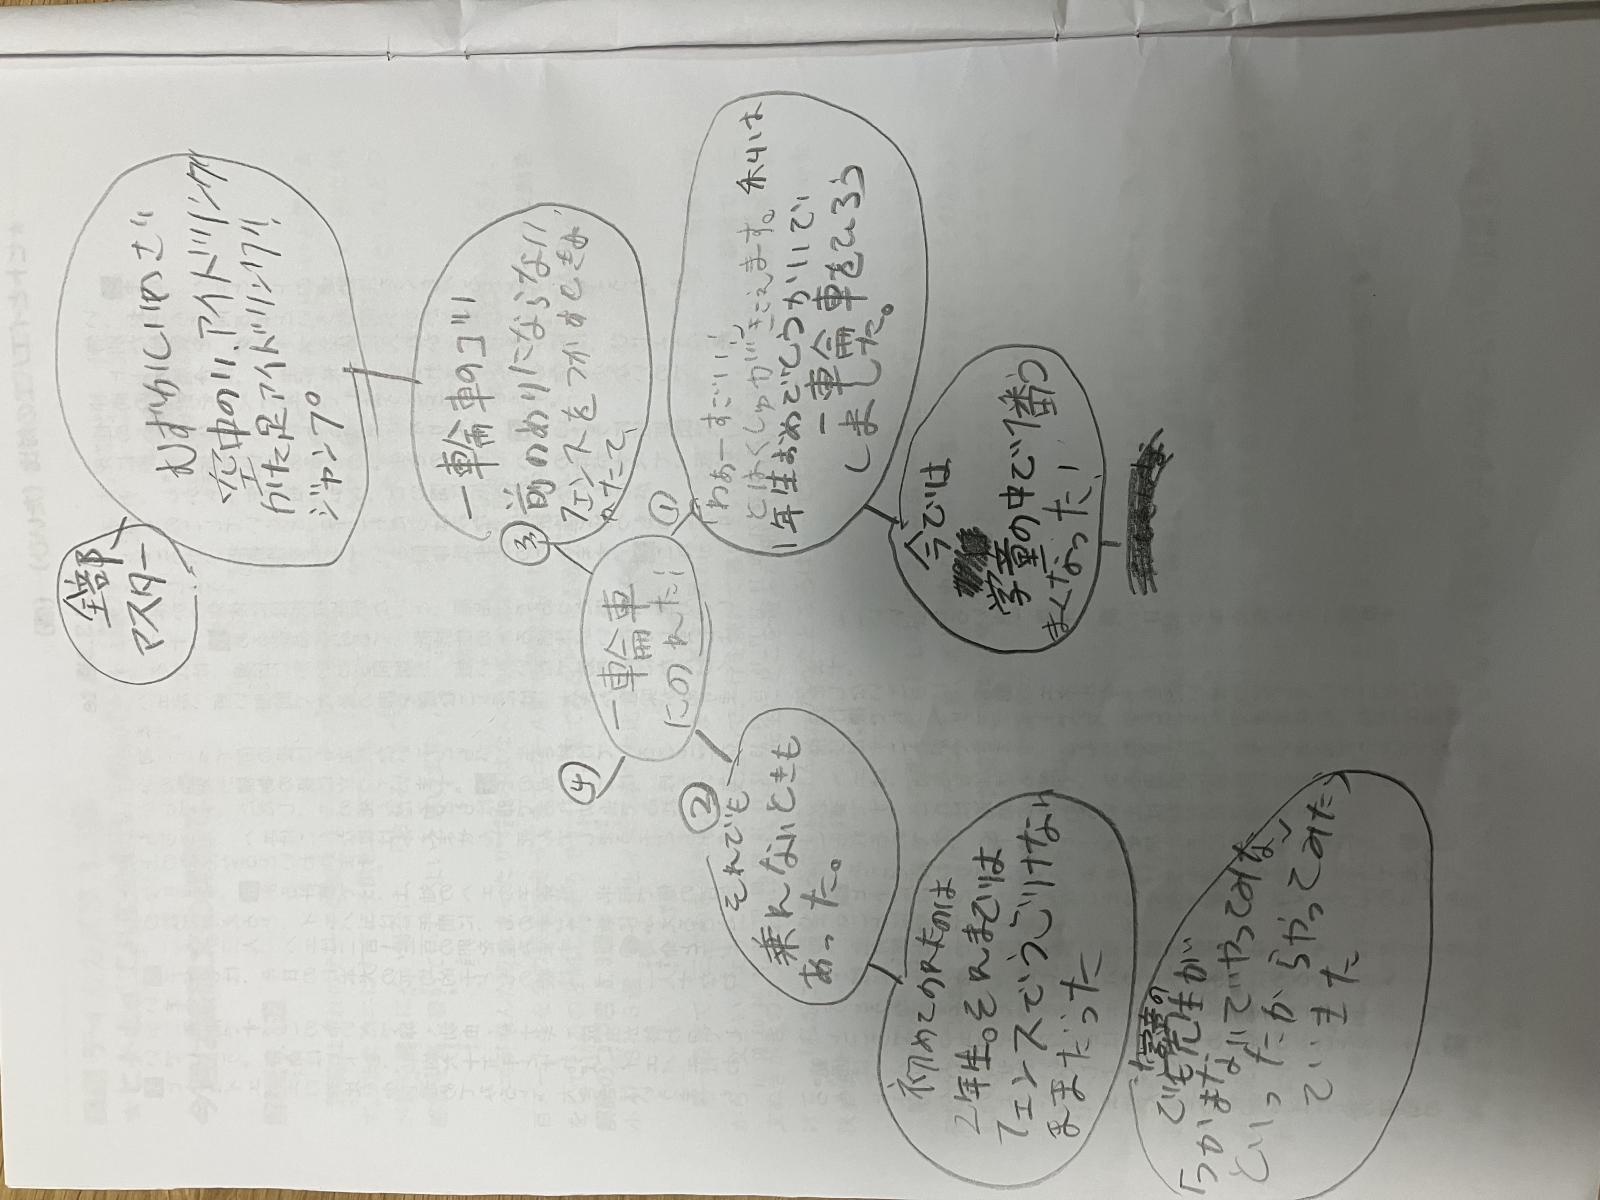 一輪車
にのれた!
①
「わぁーすごい!」
とはくしゅがきこえます。私は
1年生おめでとうかいで
一輪車をひろう
しました。
今では
学童の中で1番う
まくなった!
②
それでも
乗れないときも
あった。
初めてのれたのは
2年生。それまでは
フェンスでうごけない
ままだった
でも先生が
学童の
「つかまたないでやってみな」
といったからやってみたら
ていきた
③
一輪車のコツ
前のめりにならない
フェンスをつかむとき
かたて
むずかしいわざ
空中のり、アイドリング
かた足アイドリング
ジャンプ
全部
マスター
④